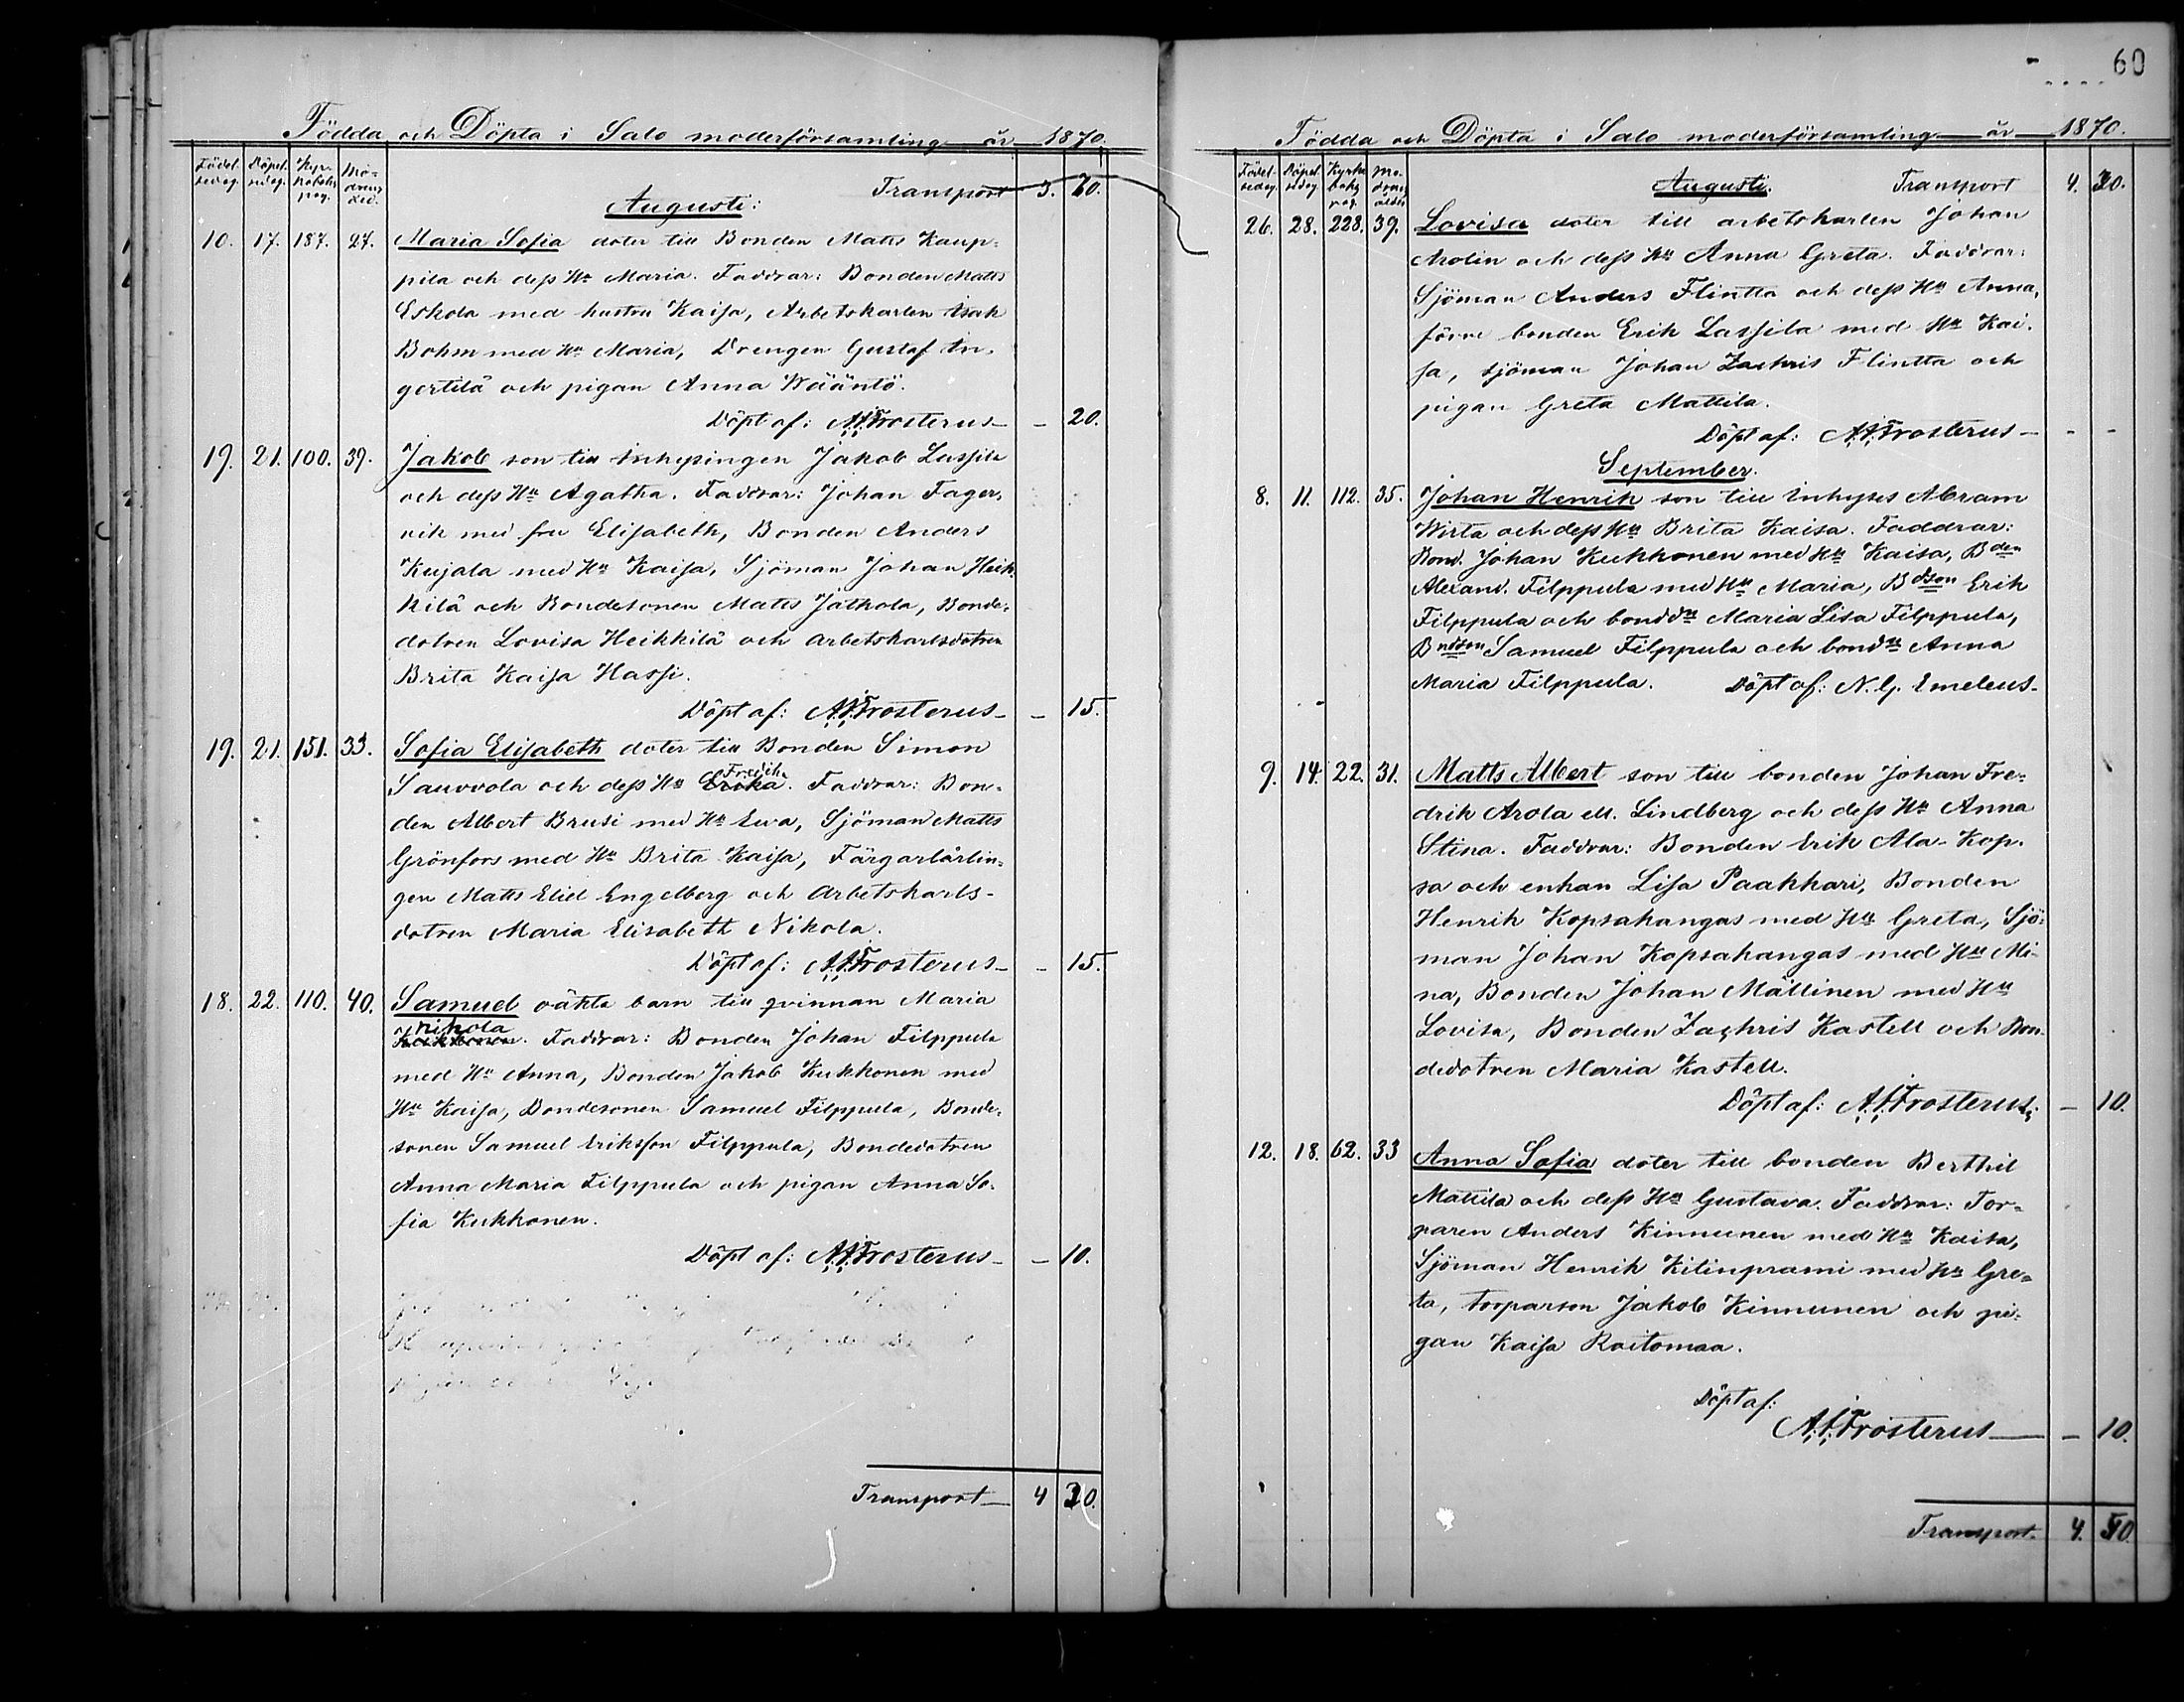 Födda och Döpta i Salo moderförsamling år 1870.
Födel- Döpel- Kyr- Mo-
sedag. sedag. kobok drens
pag. åld.
Transport 3. 70.
Augusti:
10. 17. 187. 27. Maria Sofia doter till Bonden Matts Kaup-
pila och dess Hu Maria. Faddrar: Bonden Matts
Eskola med hustru Kaisa, Arbetskarlen Isak
Bohm med Hu Maria, Drengen Gustaf In-
gertilä och pigan Anna Wääntö.
Döpt af: A. J. Frosterus — — 20.
19. 21. 100. 39. Jakob son till Inhysingen Jakob Lassila
och dess Hu Agatha. Faddrar: Johan Fager-
vik med fru Elisabeth, Bonden Anders
Kujala med Hu Kaisa, Sjöman Johan Heik-
kilä och Bondesonen Matts Jatkola, Bonde-
dotren Lovisa Heikkilä och Arbetskarlsdotren
Brita Kaisa Hassi.
Döpt af: A. J. Frosterus — — 15.
19. 21. 151. 33. Sofia Elisabeth doter till Bonden Simon
Fredrika
Sauvola och dess Hu Erika. Faddrar: Bon-
den Albert Brusi med Hu Ewa, Sjöman Matts
Grönfors med Hu Brita Kaisa, Färgarlärlin-
gen Matts Eliel Engelberg och Arbetskarls-
dotren Maria Elisabeth Nikola.
Döpt af: A. J. Frosterus — — 15.
18. 22. 110. 40. Samuel oäkta barn till qvinnan Maria
Nikola
Kukkonen. Faddrar: Bonden Johan Filppula
med Hu Anna, Bonden Jakob Kukkonen med
Hu Kaisa, Bondesonen Samuel Filppula, Bonde-
sonen Samuel Eriksson Filppula, Bondedotren
Anna Maria Filppula och pigan Anna So-
fia Kukkonen.
Döpt af: A. J. Frosterus — — 10.
Transport — 4 30.
60
Födda och Döpta i Salo moderförsamling år 1870.
Födel- Döpel- Kyrko Mo-
sedag sedag boks drens
pag. ålder
Augusti. Transport 4. 30.
26. 28. 228. 39. Lovisa doter till arbetskarlen Johan
Molin och dess Hu Anna Greta. Faddrar:
Sjöman Anders Flintta och dess Hu Anna,
förre bonden Erik Lassila med Hu Kai-
sa, sjöman Johan Zachris Flintta och
pigan Greta Mattila.
Döpt af: A. J. Frosterus — - -
September.
8. 11. 112. 35. Johan Henrik son till Inhyses Abram
Wirta och dess Hu Brita Kaisa. Faddrar:
Bond. Johan Kukkonen med Hu Kaisa, Bden
Alexand. Filppula med Hu Maria, Bdson Erik
Filppula och bonddr Maria Lisa Filppula,
Bndson Samuel Filppula och bondr Anna
Maria Filppula. Döpt af: N. G. Emeleus.
9. 14. 22. 31. Matts Albert son till bonden Johan Fre-
drik Arola ell. Lindberg och dess Hu Anna
Stina. Faddrar: Bonden Erik Ala-Kop-
sa och enkan Lisa Paakkari, Bonden
Henrik Kopsakangas med Hu Greta, Sjö-
man Johan Kopsakangas med Hu Mi-
na, Bonden Johan Mällinen med Hu
Lovisa, Bonden Zachris Kastell och Bon-
dedotren Maria Kastell.
Döpt af: A. J. Frosterus. — 10.
12. 18. 62. 33 Anna Sofia doter till bonden Berthil
Mattila och dess Hu Gustava. Faddrar: Tor-
paren Anders Kinnunen med Hu Kaisa,
Sjöman Henrik Kilinprami med Hu Gre-
ta, torparson Jakob Kinnunen och pi-
gan Kaisa Raitomaa.
Döpt af:
A. J. Frosterus — — 10.
Transport. 4. 50.